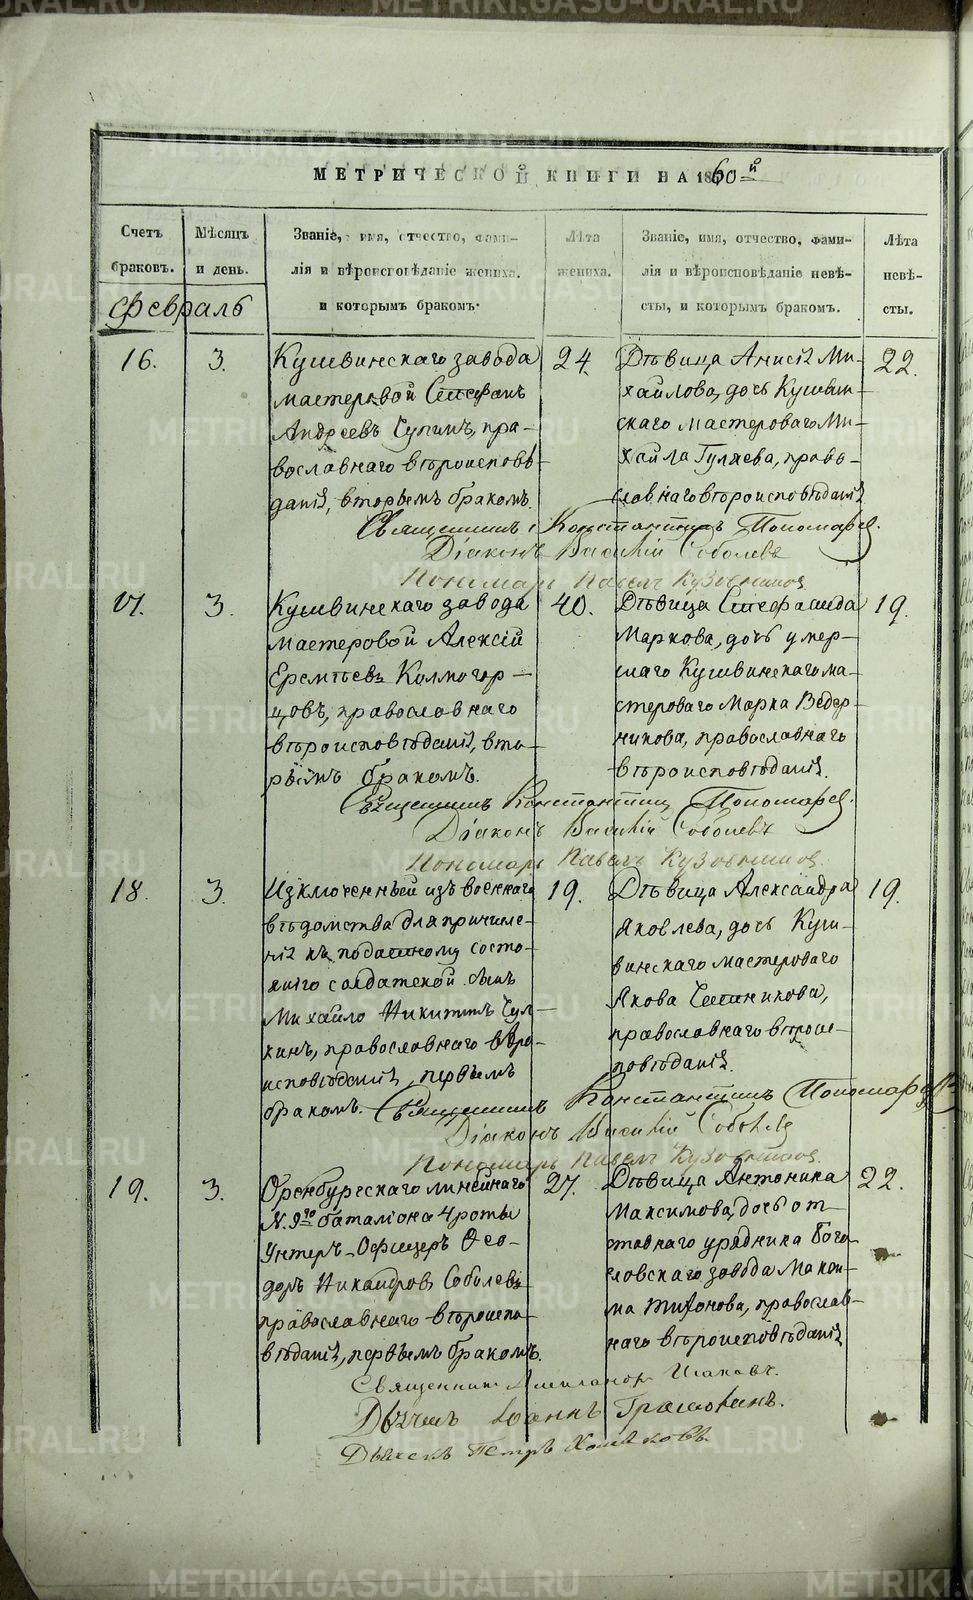 МЕТРИЧЕСКОЙ КНИГИ НА 1860й
Счетъ браковъ.
Мѣсяцъ и день.
Званіе, имя, отчество, фамилія и вѣроисповѣданіе жениха. и которымъ бракомъ.
Лѣта жениха.
Званіе, имя, отчество, фамилія и вѣроисповѣданіе невѣсты, и которымъ бракомъ.
Лѣта невѣсты.
Февраль
16. 3.
Кушвинскаго завода
мастеровой Стефанъ
Андреевъ Сулинъ, пра-
вославнаго вѣроисповѣ-
данія, вторымъ бракомъ.
24.
Дѣвица Анисія Ми-
хайлова, дочь Кушвин-
скаго мастероваго Ми-
хайла Гуляева, право-
славнаго вѣроисповѣданія
22.
Священникъ Константинъ Пономаревъ.
Діаконъ Василій Соболевъ
Пономарь Павелъ Кузовниковъ
17. 3.
Кушвинскаго завода
мастеровой Алексій
Еремѣевъ Колмогор-
цовъ, православнаго
вѣроисповѣданія, вто-
рымъ бракомъ.
40.
Дѣвица Стефанида
Маркова, дочь умер-
шаго Кушвинскаго ма-
стероваго Марка Ведер-
никова, православнаго
вѣроисповѣданія.
19.
Священникъ Константинъ Пономаревъ.
Діаконъ Василій Соболевъ
Пономарь Павелъ Кузовниковъ.
18. 3.
Изключенный изъ военнаго
вѣдомства для причисле-
нія къ податному состо-
янію солдатской сынъ
Михайло Никитинъ Сул-
кинъ, православнаго вѣро-
исповѣданія, первымъ
бракомъ.
19.
Дѣвица Александра
Яковлева, дочь Куш-
винскаго мастероваго
Якова
православнаго вѣрои-
повѣданія.
19.
Священникъ Константинъ Пономаревъ
Діаконъ Василій Соболевъ
Пономарь Павелъ Кузовниковъ.
19. 3.
Оренбургскаго линейнаго
N. 9го баталіона 4 роты
Унтеръ-Офицеръ Ѳео-
доръ Никандровъ Соболевъ
православнаго вѣроиспо-
вѣданія, первымъ бракомъ.
27.
Дѣвица Антоника
Максимова, дочь от-
ставнаго урядника Бого-
словскаго завода Макси-
ма Тихонова, православ-
наго вѣроисповѣданія
22.
Священникъ Александръ
Дьячекъ Іоаннъ
Дьячекъ Петръ Хомяковъ.